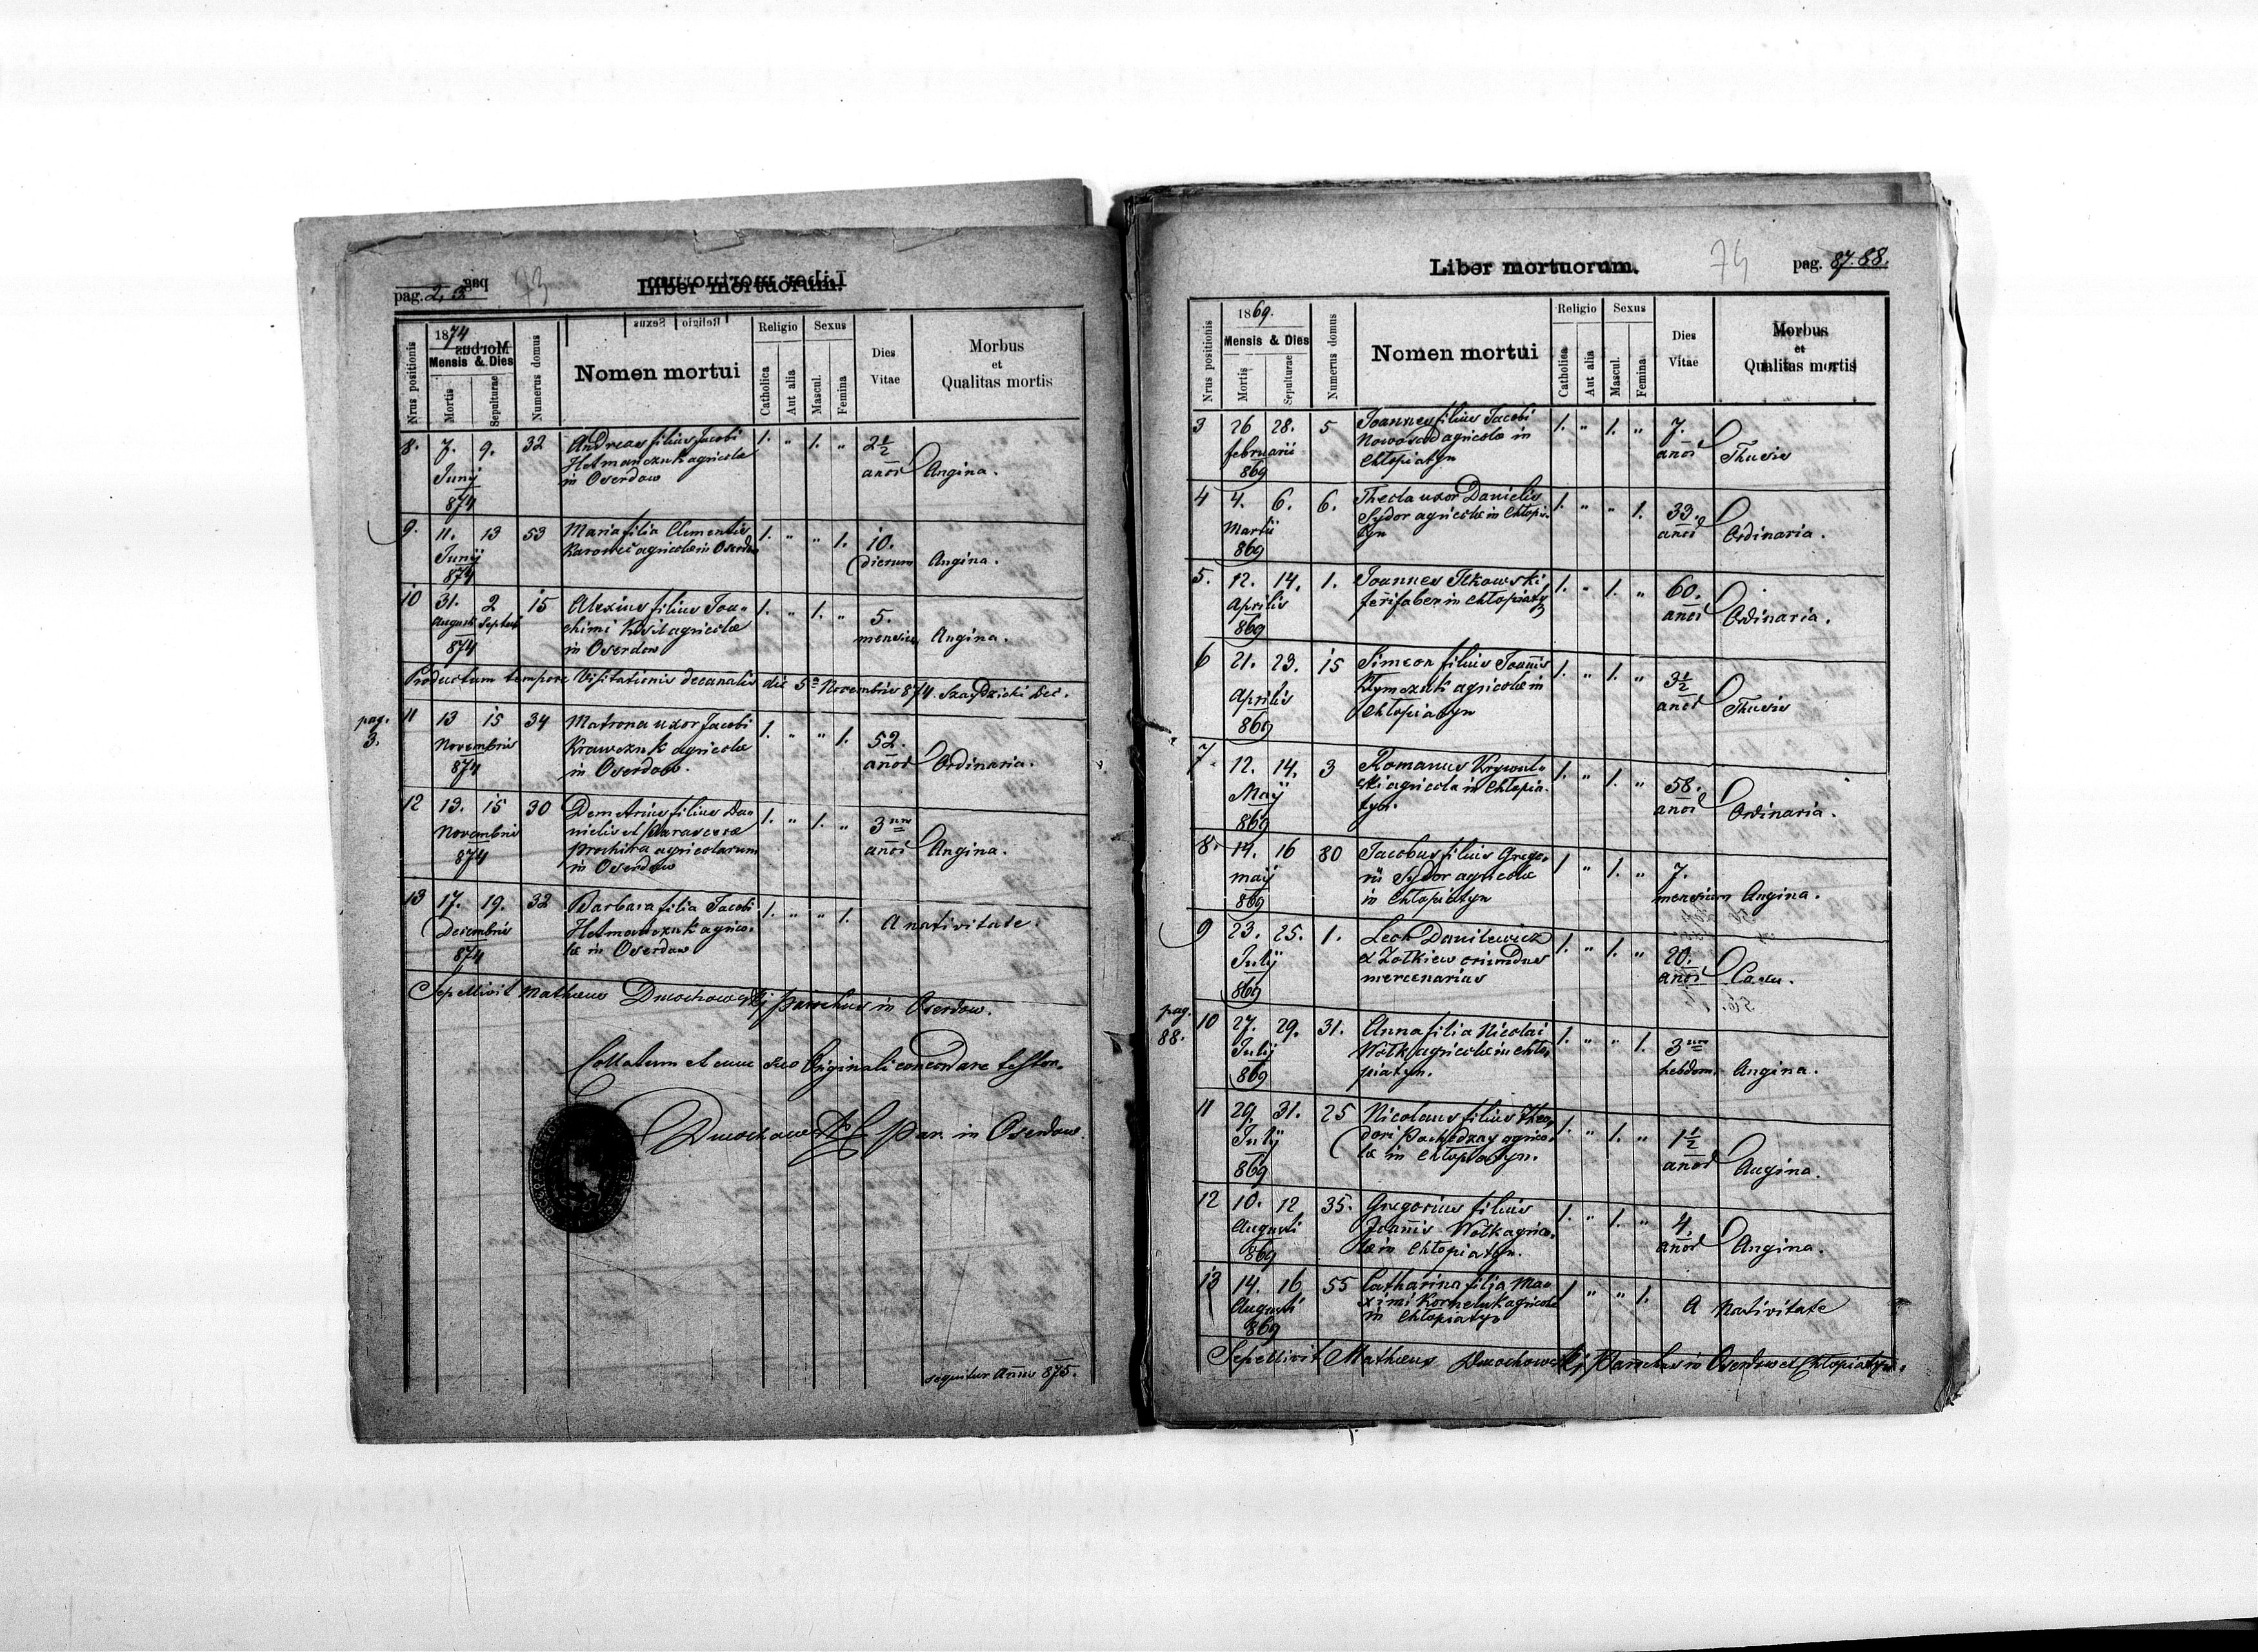 pag. 2. 3.
73
Liber mortuorum.
Nrus positionis
1874
Mensis & Dies
Mortis
Sepulturae
Numerus domus
Nomen mortui
Religio
Catholica
Aut alia
Sexus
Mascul.
Femina
Dies
Vitae
Morbus
et
Qualitas mortis
8. 7. 9. 32 Andreas filius Jacobi 1. " 1. " 2 1/2
Junij Hetmanczuk agricolæ anor̄ Angina.
874 in Oserdow
9. 11. 13 53 Maria filia Clementis 1. " " 1. 10.
Junij agricolæ in Oserdow dierum Angina.
874
10 31. 2 15 Alexius filius Joa- 1. " 1. " 5.
Augusti Septembr chimi agricolæ mensium Angina.
874 in Oserdow
Productum tempore Visitationis decanalis die 5ª Novembris 874. Dec.
pag. 3.
11 13 15 34 Matrona uxor Jacobi 1. " " 1. 52.
Novembris Krawczuk agricolæ anor̄ Ordinaria.
874 in Oserdow.
12 13. 15 30 Demetrius filius Da- 1. " 1. " 3um
Novembris nielis et Parascevæ anor̄ Angina.
874 Prochira agricolarum
in Oserdow
13 17. 19. 32 Barbara filia Jacobi 1. " " 1. A nativitate.
Decembris Hetmanczuk agrico-
874 læ in Oserdow
Sepellivit Matheus Dmochowskij Parochus in Oserdow.
Collatum et cum suo Originali concordare testor.
Dmochowski Par. in Oserdow.
sequitur Annus 875.
74
Liber mortuorum.
pag. 87. 88.
Nrus positionis
1869.
Mensis & Dies
Mortis
Sepulturae
Numerus domus
Nomen mortui
Religio
Catholica
Aut alia
Sexus
Mascul.
Femina
Dies
Vitae
Morbus
et
Qualitas mortis
3 26 28. 5 Joannes filius Jacobi 1. " 1. " 7.
februarii Nowosad agricolæ in anor̄ Thusis
869 Chłopiatyn
4 4. 6. 6. Thecla uxor Danielis 1. " " 1. 33.
Martii Sydor agricolæ in Chłopia- anor̄ Ordinaria.
869 tyn
5. 12. 14. 1. Joannes Ilkowski 1. " 1. " 60.
Aprilis ferrifaber in Chłopiatyn anor̄ Ordinaria.
869
6 21. 23. 15 Simeon filius Joannis 1. " 1. " 3 1/2
Aprilis Klymczuk agricolæ in anor̄ Thusis
869 Chłopiatyn
7. 12. 14. 3 Romanus 1. " 1. " 58.
Maij agricola in Chłopia- anor̄ Ordinaria.
869 tyn.
8. 14. 16 80 Jacobus filius Grego- 1 " 1. " 7.
maij rii Sydor agricolæ mensium Angina.
869 in Chłopiatyn
9 23. 25. 1. Lech Danilewicz 1. " 1. " 20.
Julij ex Zołkiew oriundus anor̄ Casu.
869 mercenarius
pag. 88.
10 27. 29. 31. Anna filia Nicolai 1. " " 1. 3um
Julij Wołk agricolæ in Chło- hebdom. Angina.
869 piatyn.
11 29 31. 25 Nicolaus filius Theo- 1. " 1. " 1 1/2
Julij dori agrico- anor̄ Angina.
869 læ in Chłopiatyn.
12 10. 12 35. Gregorius filius 1. " 1. " 4.
Augusti Joannis Wołk agrico- anor̄ Angina.
869 læ in Chłopiatyn.
13 14. 16 55 Catharina filia Ma- 1 " " 1. A Nativitate
Augusti ximi Korneluk agricolæ
869 in Chłopiatyn
Sepellivit Matheus Dmochowskij Parochus in Oserdow et Chłopiatyn.